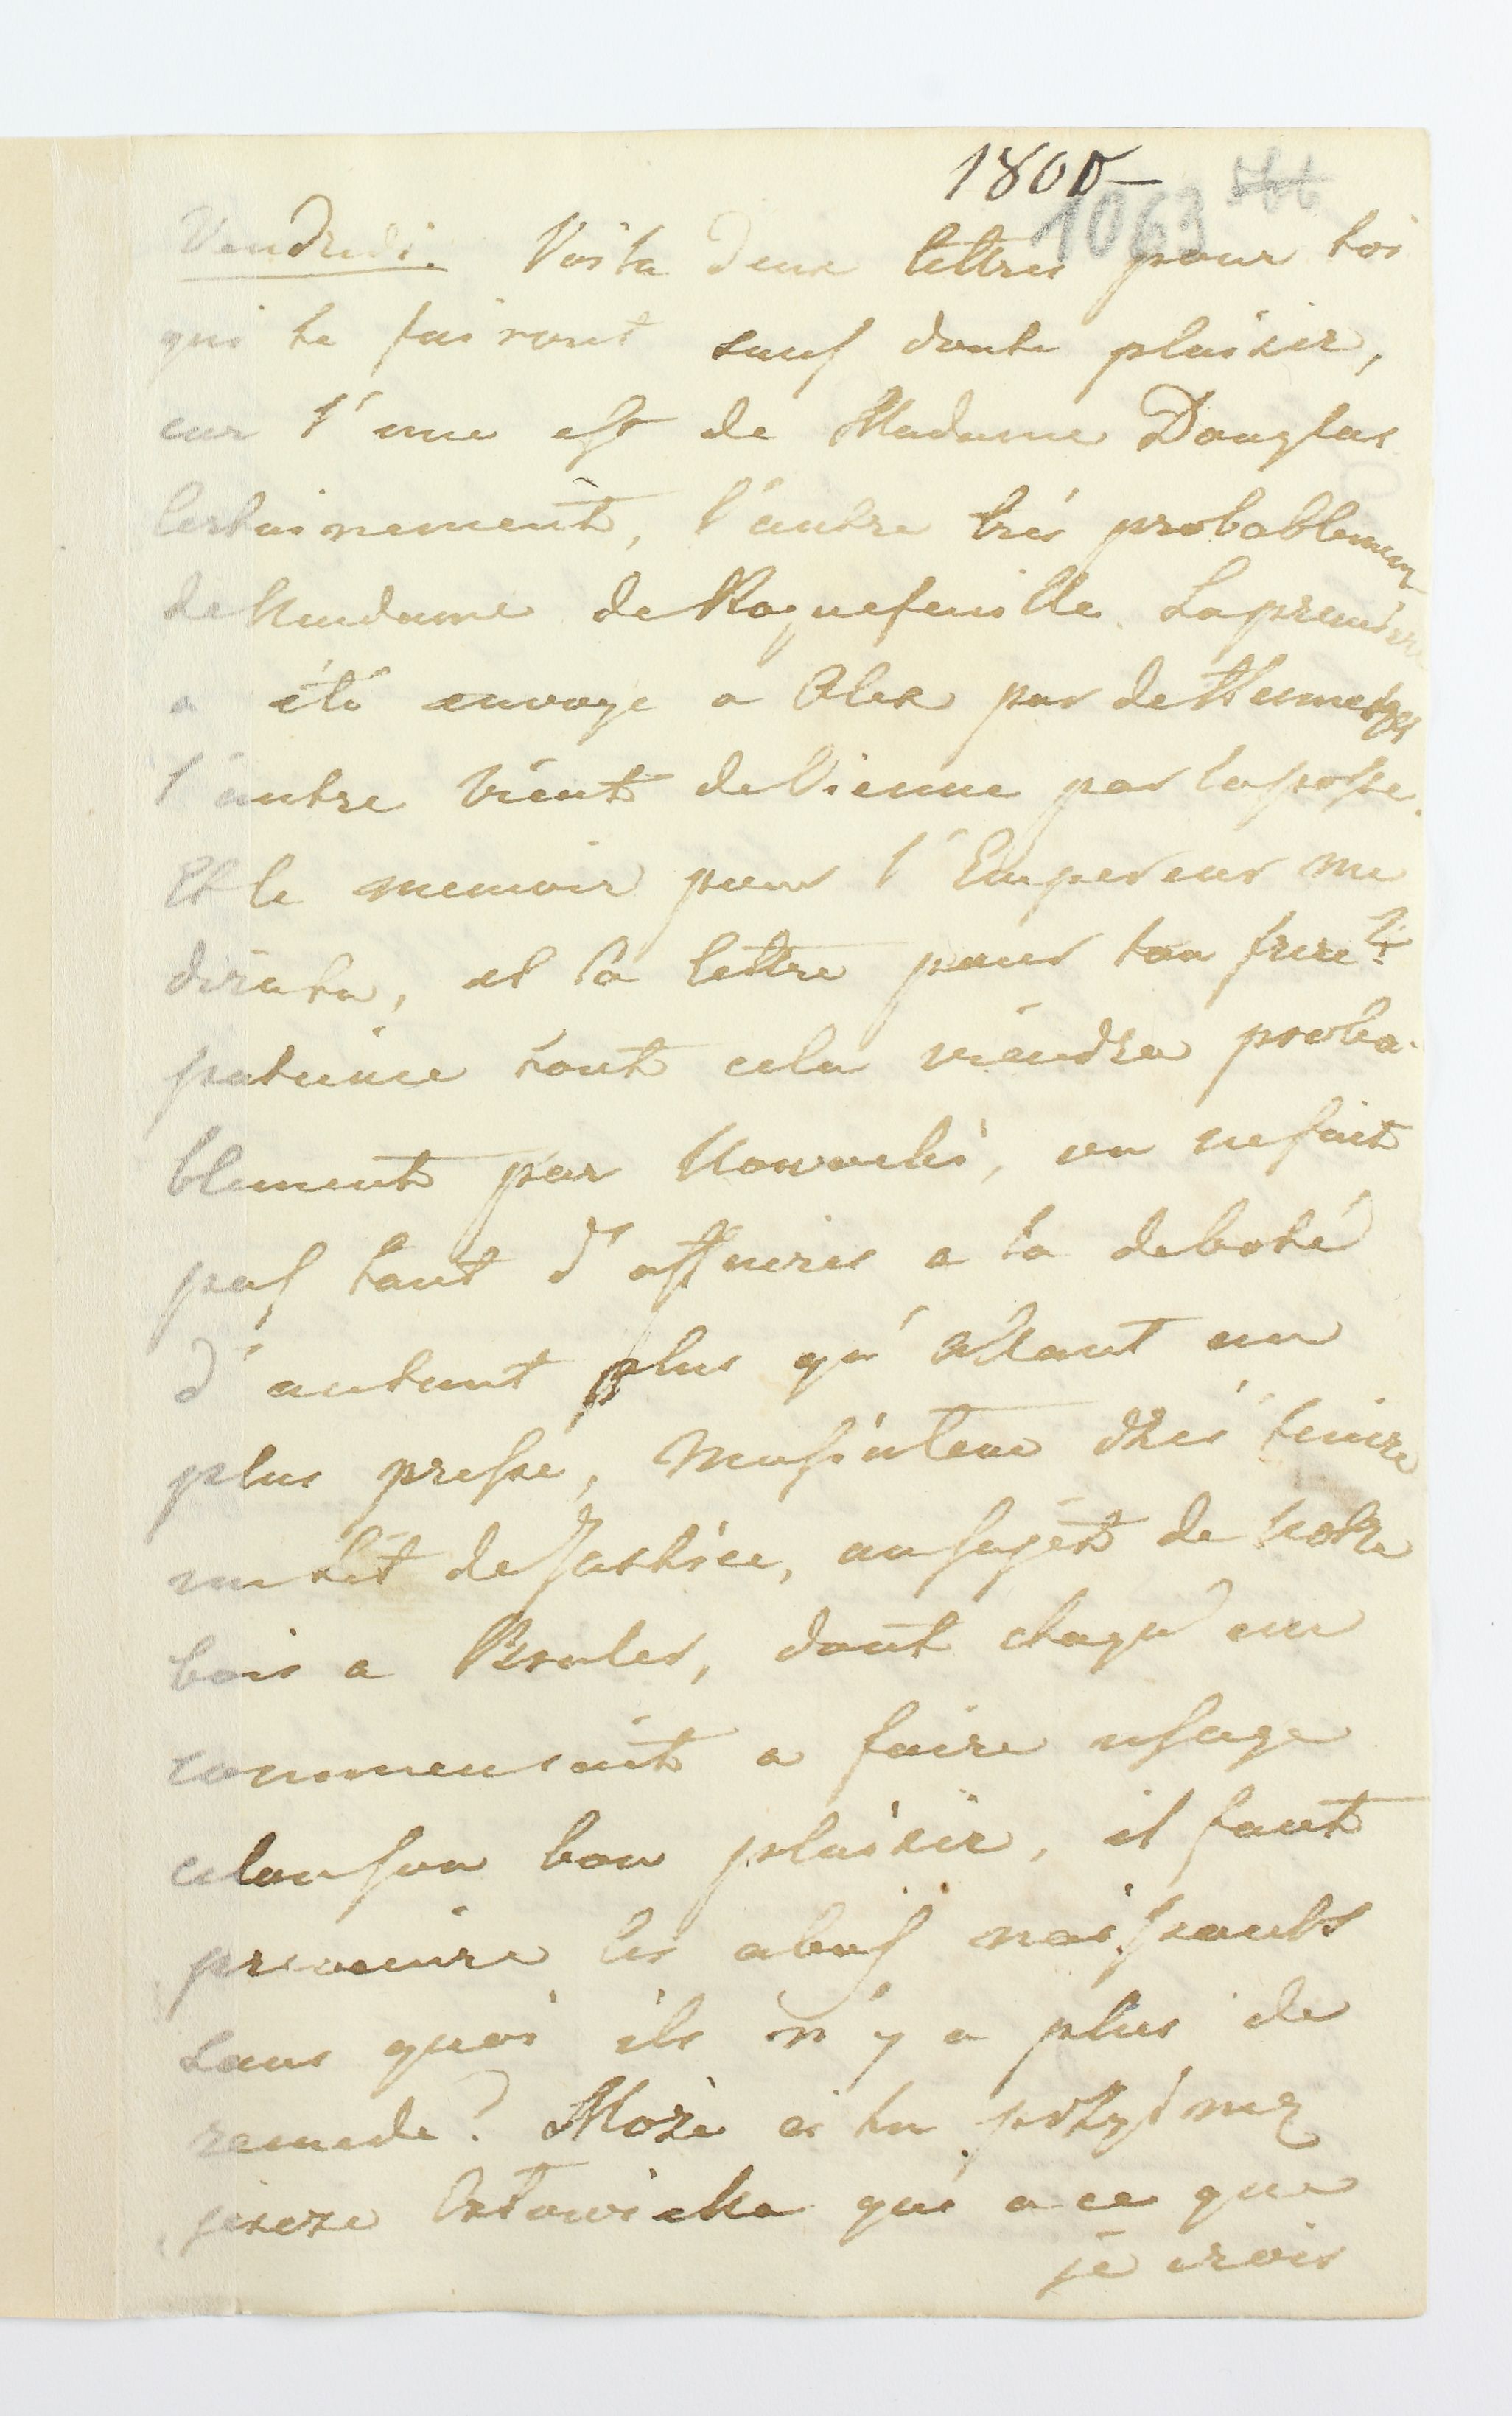 1800
1063
Vendredi. Voila deux lettres pour toi
qui te fairont sauf doute plaisir,
car l'une est de Madame Douglas
Certainement, l'autre très probablement
de Madame de Roquefeuille. La premiere
a été envoye a Alex par de
l'autre vient de Vienne par la poste.
Et le memoir pour l'Empereur me
diratu, et la lettre pour ton frere?
patience tout cela viendra proba-
blement par Nowacki, on ne fait
pas tant d'affaires a la deboté
d'autant plus qu'étant au
plus pressé, tenire
un lit de Justice, au sujet de notre
bois a Bruler, dont chaqu'un
commensait a faire usage
celon son bon plaisir, il faut
prevenire les abus naissants
sans quoi ils n'y a plus de
remede? Może ci tu przyśnię
jeszcze que a ce que
je crois